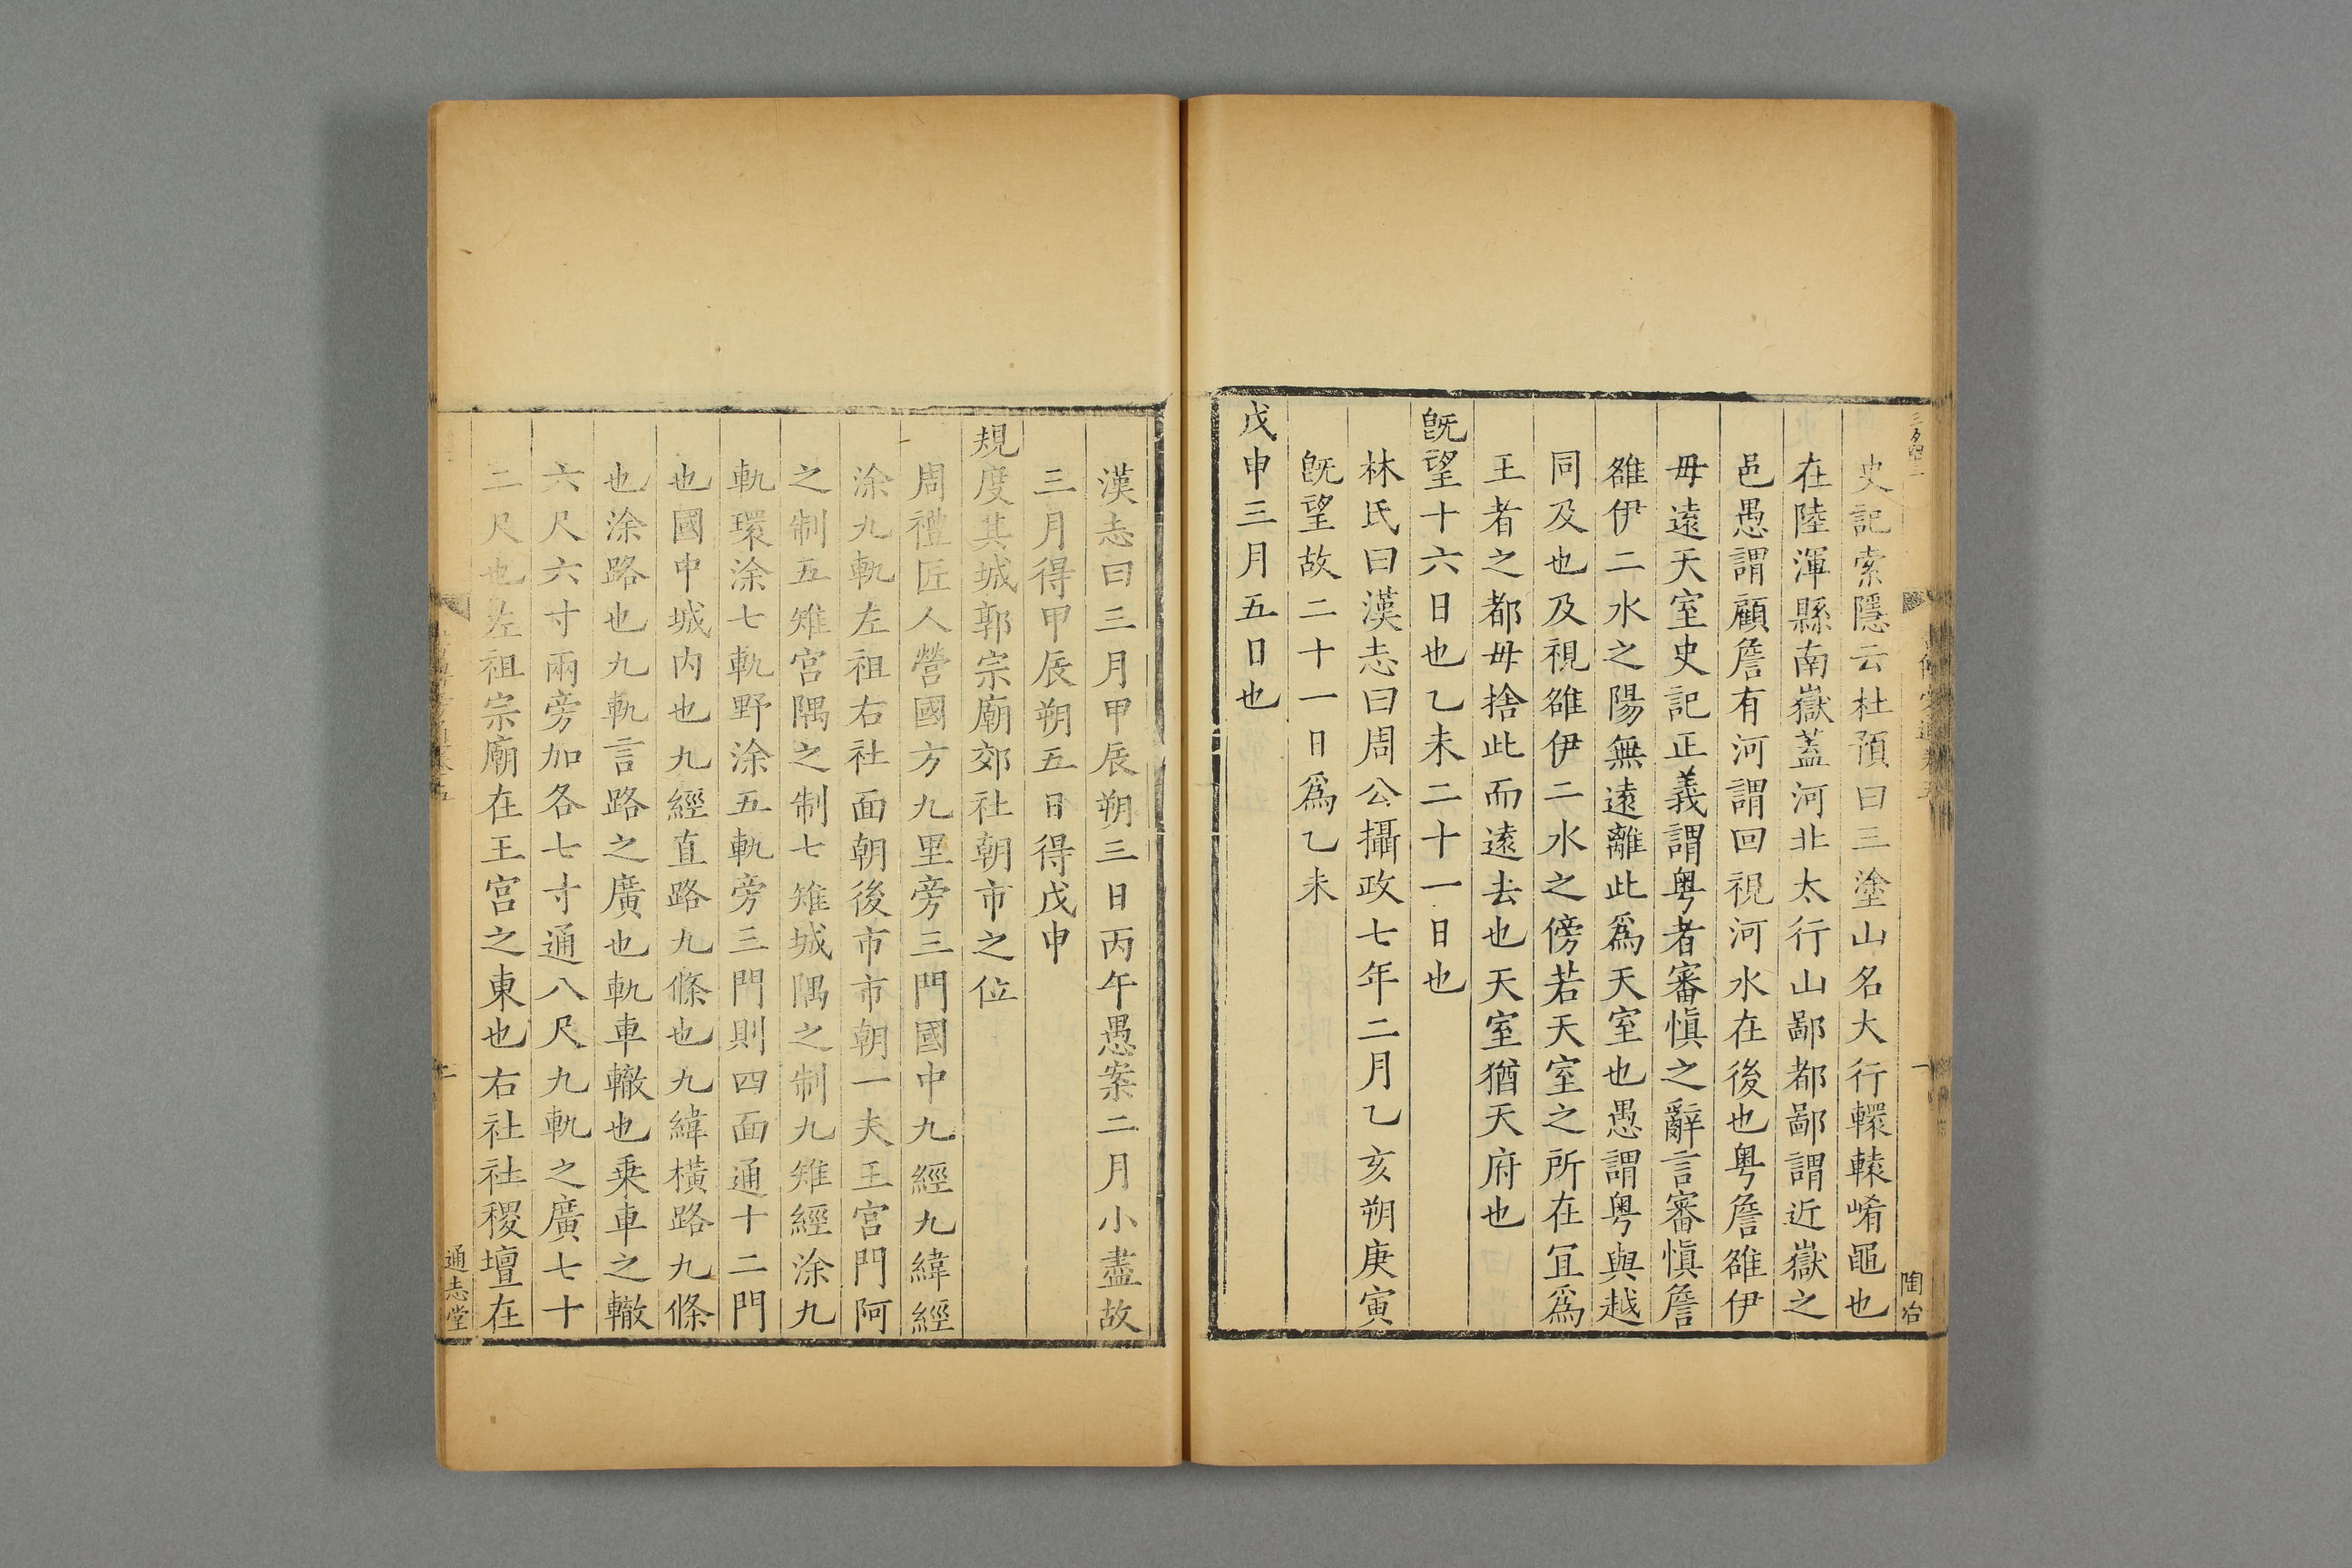 史記索隱云杜預曰三塗山名大行轘轅崤黽也
在陸渾縣南嶽蓋河北太行山鄙都鄙謂近嶽之
邑愚謂顧詹有河謂回視河水在後也粤詹雒伊
毋遠天室史記正義謂粤者審慎之辭言審慎詹
雒伊二水之陽無遠離此爲天室也愚謂粤與越
同及也及視雒伊二水之傍若天室之所在宜爲
王者之都毋捨此而遠去也天室猶天府也
旣望十六日也乙未二十一日也
林氏曰漢志曰周公攝政七年二月乙亥朔庚寅
旣望故二十一日爲乙未
戊申三月五日也
陶冶
漢志曰三月甲辰朔三日丙午愚案二月小盡故
三月得甲辰朔五日得戊申
規度其城郭宗廟郊社朝市之位
周禮匠人營國方九里旁三門國中九經九緯經
涂九軌左祖右社面朝後市市朝一夫王宮門阿
之制五雉宮隅之制七雉城隅之制九雉經涂九
軌環涂七軌野涂五軌旁三門則四面通十二門
也國中城内也九經直路九條也九緯橫路九條
也涂路也九軌言路之廣也軌車轍也乗車之轍
六尺六寸兩旁加各七寸通八尺九軌之廣七十
二尺也左祖宗廟在王宮之東也右社社稷壇在
二
通志堂